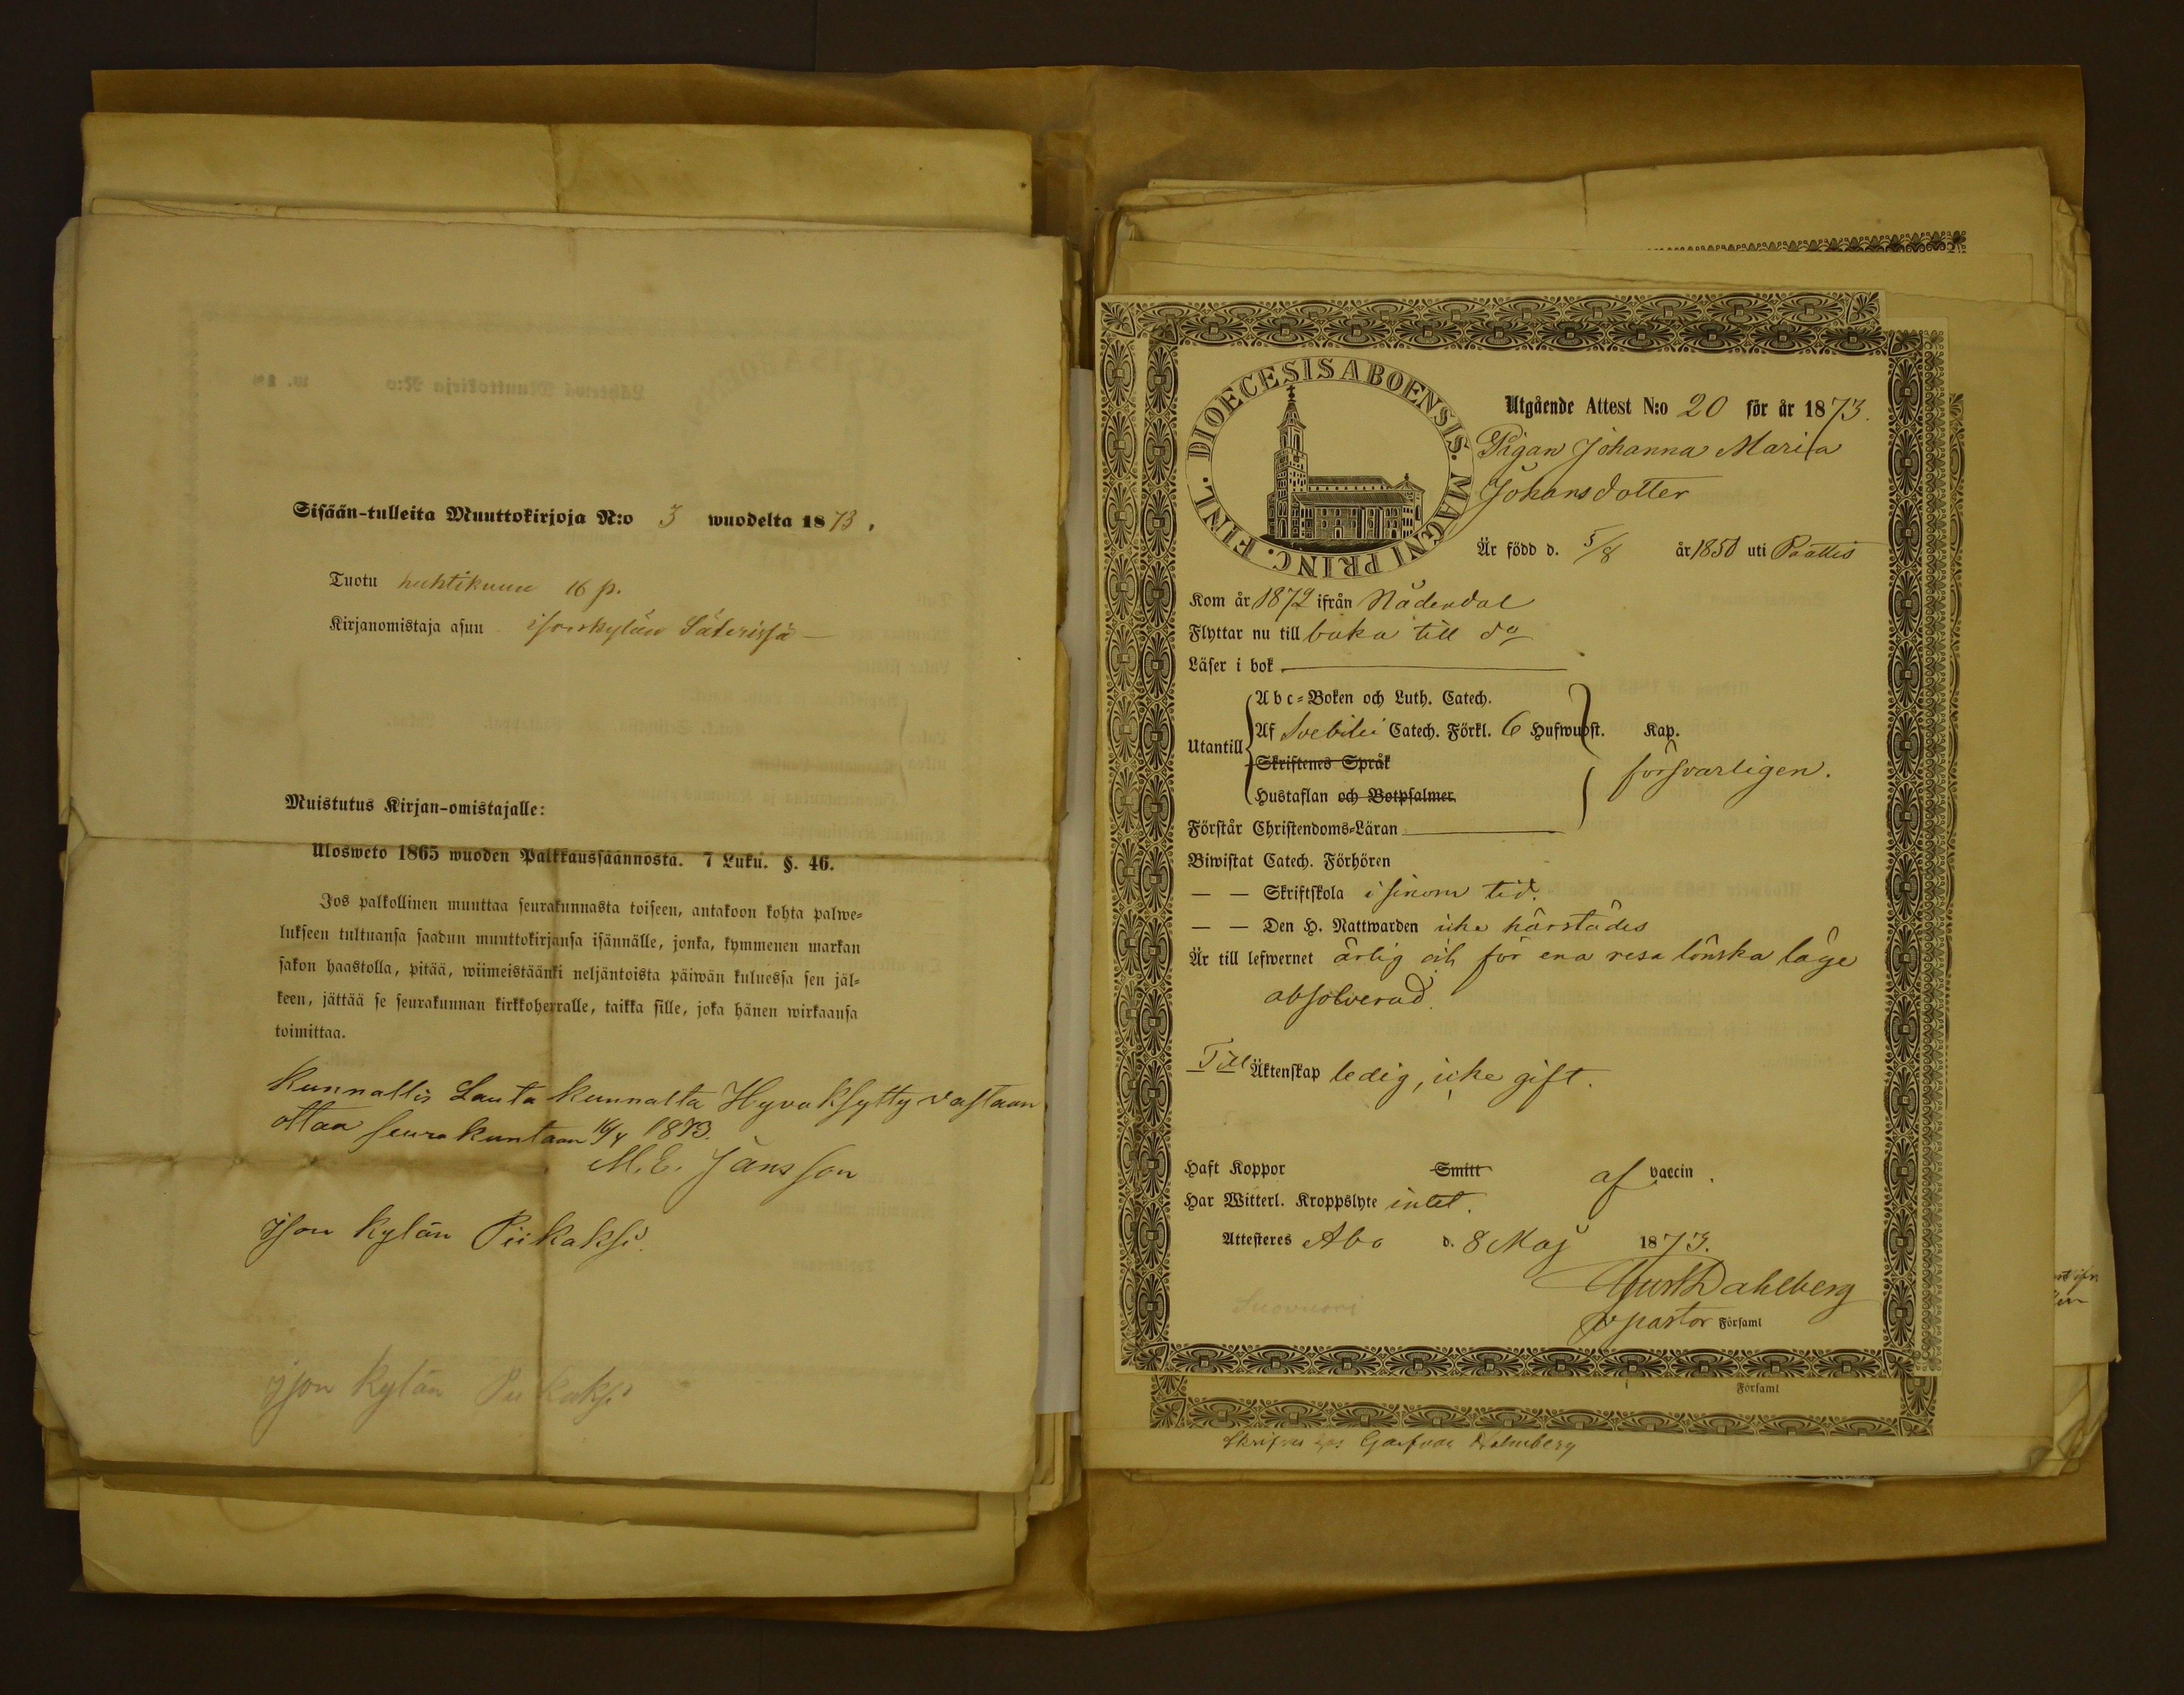 Sisään-tulleita Muuttokirjoja N:o 3 wuodelta 1873.
Tuotu huhtikuun 16 p.
Kirjanomistaja asuu isonkylän Säterissä —
Muistutus Kirjan-omistajalle:
Ulosweto 1865 wuoden Palkkaussäännöstä. 7 Luku. §. 46.
Jos palkollinen muuttaa seurakunnasta toiseen, antakoon kohta palwe-
lukseen tultuansa saadun muuttokirjansa isännälle, jonka, kymmenen markan
sakon haastolla, pitää, wiimeistäänki neljäntoista päiwän kuluessa sen jäl-
keen, jättää se seurakunnan kirkkoherralle, taikka sille, joka hänen wirkaansa
toimittaa.
Kunnallis Lauta kunnalta Hyvaksytty vastaan
ottaa seurakuntaan 16/4 1873.
M. E. Jansson
ison kylän Piikaksi.
ison kylän Piikaksi
DIOECESIS ABOENSIS. MAGNI PRINC. FINL.
Utgående Attest N:o 20 för år 1873.
Pigan Johanna Maria
Johansdotter
Är född d. 5/8 år 1850 uti Paattis
Kom år 1872 ifrån Nådendal
Flyttar nu till baka till do
Läser i bok
Abc-Boken och Luth. Catech.
Utantill Af Svebilii Catech. Förkl. 6 Hufwudst. Kap.
Skriftenes Språk
försvarligen.
Hustaflan och Botpsalmer
Förstår Christendoms-Läran
Biwistat Catech. Förhören
— — Skriftskola i sinom tid.
— — Den H. Nattwarden icke härstädes
Är till lefwernet ärlig och för ena resa lönska läge
absolverad.
Till Äktenskap ledig, icke gift.
Haft Koppor Smitt af vaccin.
Har Witterl. Kroppslyte intet.
Attesteres Åbo d. 8 Maj 1873.
Dahlberg
v pastor Församl
Suovuori
i Församl
Skrifves hos Garfvar Holmberg